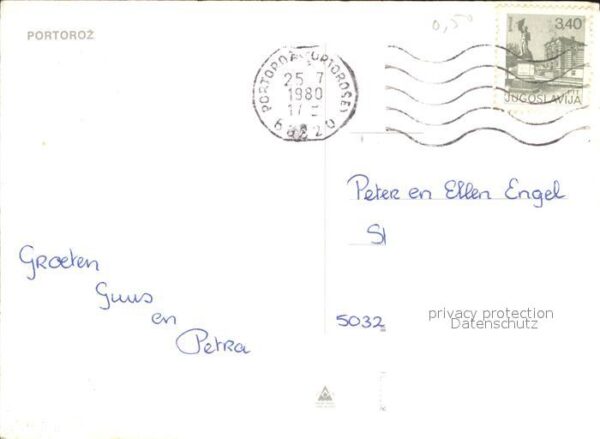 PORTOROŽ
0,50
PORTOROŽ (PORTOROSE)
25 7
1980
17
66320
3,40
JUGOSLAVIJA
Peter en Ellen Engel
St
Groeten
Guus
en
Petra
5032
privacy protection
Datenschutz